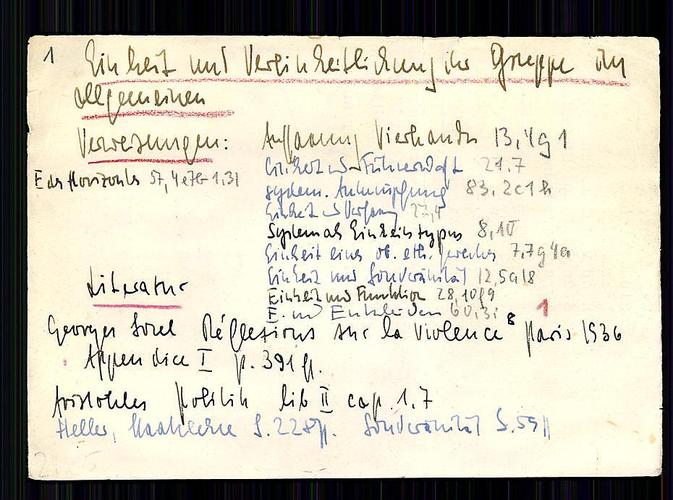 1 Einheit und Vereinheitlichung der Gruppe im
allgemeinen
Verweisungen: Auffassung Vierkandts 13,4g1
E des Horizontes 57,4e7b1,31
Einheit und Führerschaft 21.7
system. Anknüpfung 83,2c1b
Einheit u Verfassung 27,4
System als Einheitstypus 8,10
Einheit eines ob. eth. 7,7g4a
Einheit und Souveränität 12,5a18
Einheit und Funktion 28,10f9
E. und 60,3i
Literatur 1
Georges Sorel Réflexions sur la violence 8 Paris 1936
Appendice I p. 391ff.
Aristoteles Politik lib II cap. 1.7
Heller, Staatslehre S. 228ff. Souveränität S. 59ff